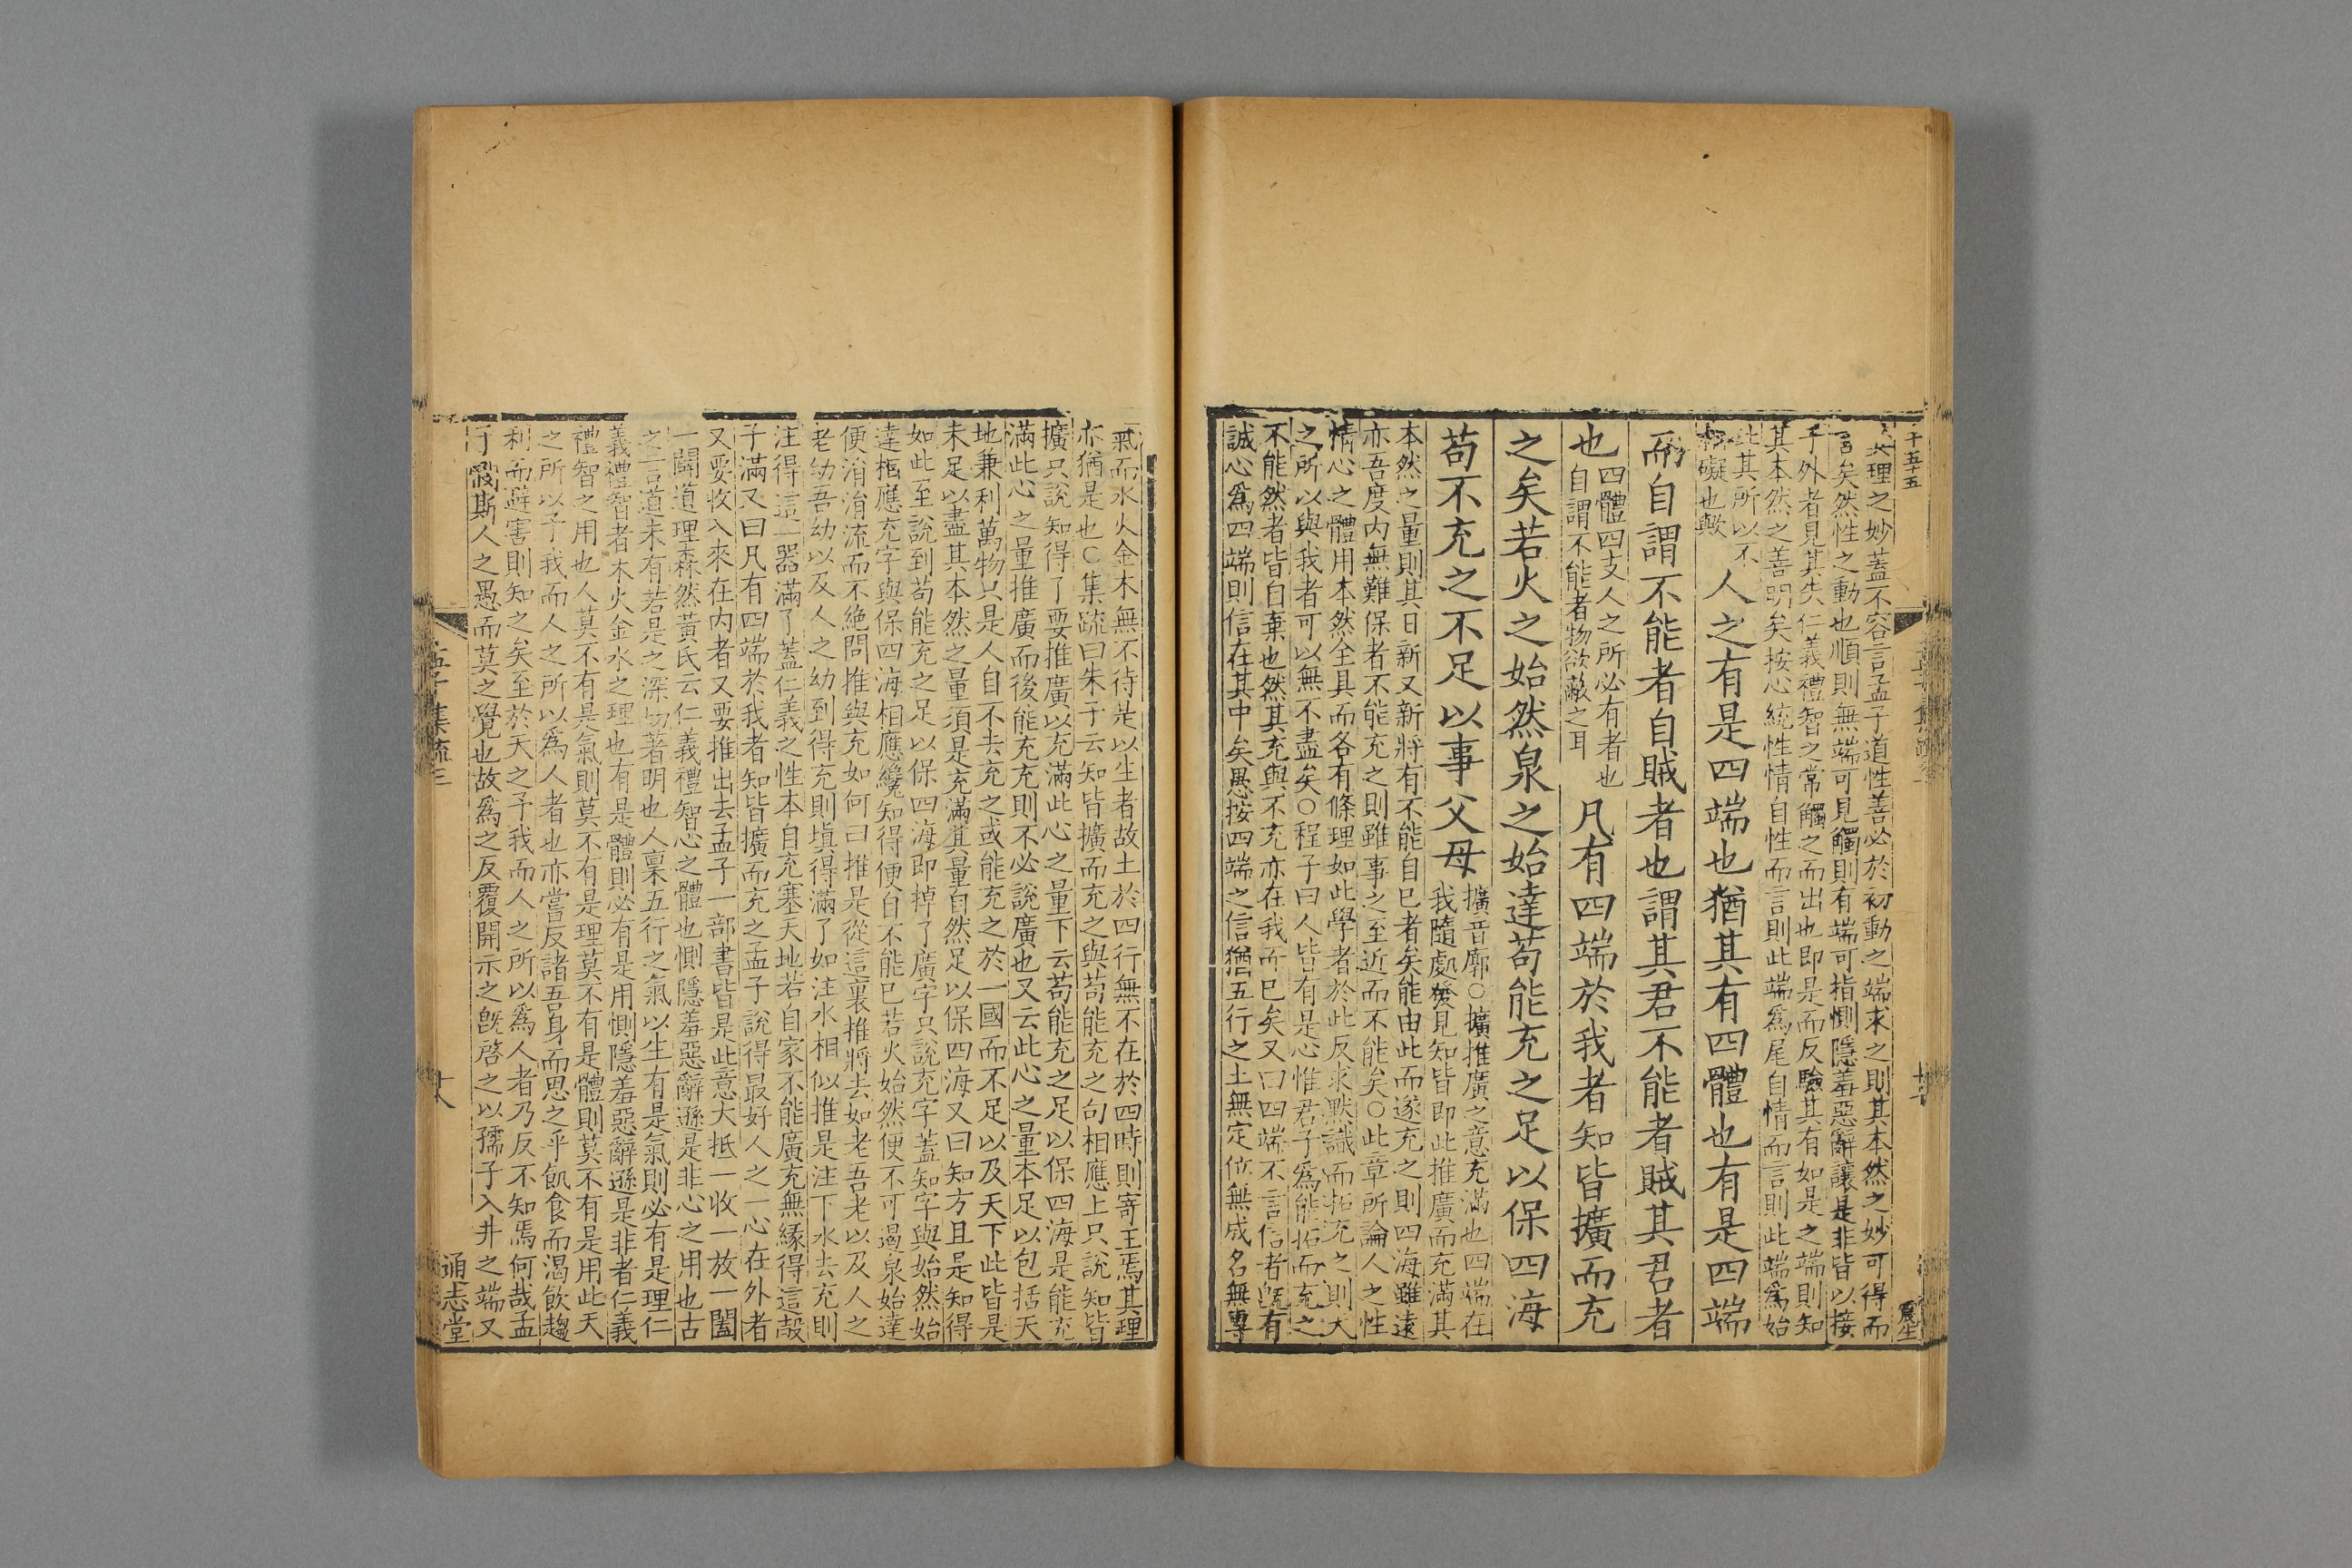 理之妙蓋不容言孟子道性善必於初動之端求之則其本然之妙可得而
言矣然性之動也順則無端可見觸則有端可指惻隱羞惡辭讓是非皆以接
于外者見其失仁義禮智之常觸之而出也即是而反驗其有如是之端則知
其本然之善明矣按心統性情自性而言則此端爲尾自情而言則此端爲始
此其所以不
相礙也歟
人之有是四端也猶其有四體也有是四端
而自謂不能者自賊者也謂其君不能者賊其君者
也
四體四支人之所必有者也
自謂不能者物欲蔽之耳
凡有四端於我者知皆擴而充
之矣若火之始然泉之始達苟能充之足以保四海
苟不充之不足以事父母
擴音廓○擴推廣之意充滿也四端在
我隨處發見知皆即此推廣而充滿其
本然之量則其日新又新將有不能自已者矣能由此而遂充之則四海雖遠
亦吾度内無難保者不能充之則雖事之至近而不能矣○此章所論人之性
情心之體用本然全具而各有條理如此學者於此反求默識而拓充之則天
之所以與我者可以無不盡矣○程子曰人皆有是心惟君子爲能拓而充之
不能然者皆自棄也然其充與不充亦在我而已矣又曰四端不言信者既有
誠心爲四端則信在其中矣愚按四端之信猶五行之土無定位無成名無專
氣而水火金木無不待是以生者故土於四行無不在於四時則寄王焉其理
亦猶是也○集疏曰朱子云知皆擴而充之與苟能充之句相應上只說知皆
擴只說知得了要推廣以充滿此心之量下云苟能充之足以保四海是能充
滿此心之量推廣而後能充充則不必說廣也又云此心之量本足以包括天
地兼利萬物只是人自不去充之或能充之於一國而不足以及天下此皆是
未足以盡其本然之量須是充滿其量自然足以保四海又曰知方且是知得
如此至說到苟能充之足以保四海即掉了廣字只說充字蓋知字與始然始
達相應充字與保四海相應纔知得便自不能已若火始然便不可遏泉始達
便涓涓流而不絶問推與充如何曰推是從這裏推將去如老吾老以及人之
老幼吾幼以及人之幼到得充則塡得滿了如注水相似推是注下水去充則
注得這一器滿了蓋仁義之性本自充塞天地若自家不能廣充無緣得這殼
子滿又曰凡有四端於我者知皆擴而充之孟子說得最好人之一心在外者
又要收入來在内者又要推出去孟子一部書皆是此意大抵一收一放一闔
一闢道理森然黃氏云仁義禮智心之體也惻隱羞惡辭遜是非心之用也古
之言道未有若是之深切著明也人稟五行之氣以生有是氣則必有是理仁
義禮智者木火金水之理也有是體則必有是用惻隱羞惡辭遜是非者仁義
禮智之用也人莫不有是氣則莫不有是理莫不有是體則莫不有是用此天
之所以予我而人之所以爲人者也亦嘗反諸吾身而思之乎飢食而渴飲趨
利而避害則知之矣至於天之予我而人之所以爲人者乃反不知焉何哉孟
子憫斯人之愚而莫之覺也故爲之反覆開示之旣啓之以孺子入井之端又
孟子集疏三
十八
通志堂